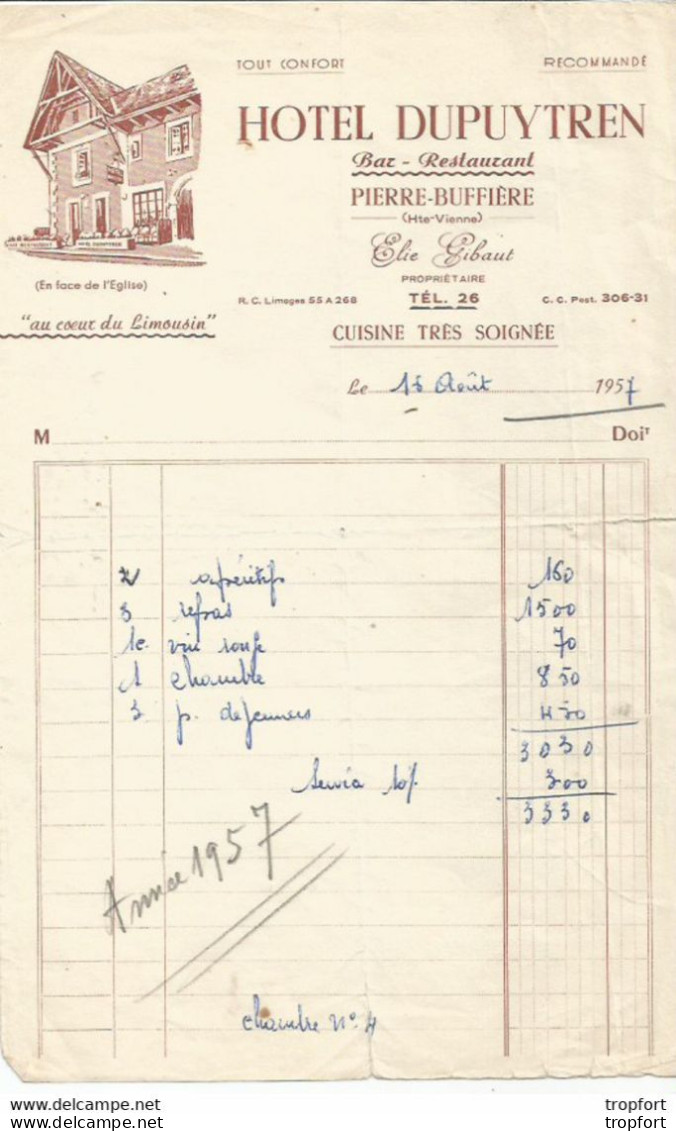 TOUT CONFORT RECOMMANDÉ
HOTEL DUPUYTREN
Bar - Restaurant
PIERRE-BUFFIÈRE
(Hte-Vienne)
Elie Gibaut
PROPRIÉTAIRE
HOTEL DUPUYTREN
(En face de l'Eglise)
R. C. Limoges 55 A 268 TÉL. 26 C. C. Post. 306-31
"au coeur du Limousin"
CUISINE TRÈS SOIGNÉE
Le 15 Août 1957
M Doit
2 apéritifs 160
3 repas 1500
1c. vin rouge 70
1 chambre 850
3 p. dejeuners 450
3030
Service 10% 300
3330
Année 1957
chambre N° 4
Delcampe.net
tropfort
tropfort
The Collector's Universe
tropfort